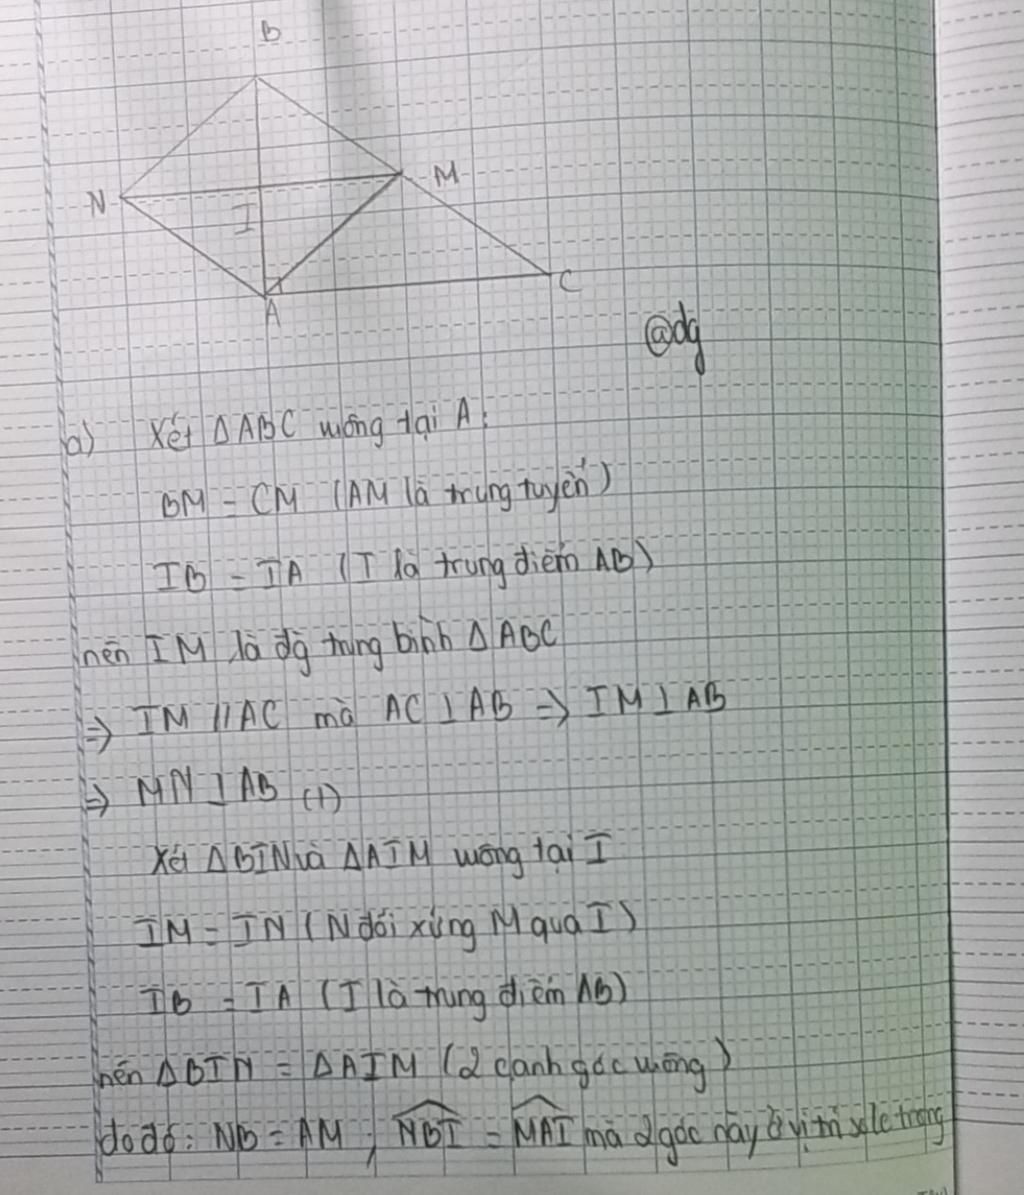 B
N
M
I
A
C
@dg
a) Xét ΔABC vuông tại A:
BM = CM (AM là trung tuyến)
IB = IA (I là trung điểm AB)
nên IM là đg trung bình ΔABC
=> IM // AC mà AC ⊥ AB => IM ⊥ AB
=> MN ⊥ AB (1)
Xét ΔBIN và ΔAIM vuông tại I
IM = IN (N đối xứng M qua I)
IB = IA (I là trung điểm AB)
nên ΔBIN = ΔAIM (2 cạnh góc vuông)
do đó: NB = AM, \widehat{NBI} = \widehat{MAI} mà 2 góc này ở vị trí sole trong